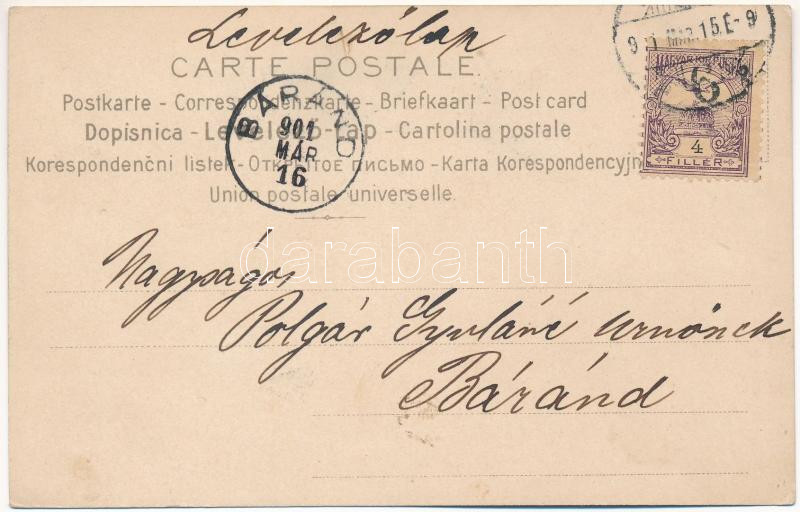 Levelezőlap
CARTE POSTALE.
Postkarte - Correspondenzkarte - Briefkaart - Post card
Dopisnica - Levelező-Lap - Cartolina postale
Korespondenčni listek - Открытое письмо - Karta Korespondencyjn
Union postale universelle.
BÁRÁND
901
MÁR
16
MAR. 15. E-9
MAGYAR KIR. POSTA
4
FILLÉR
darabanth
Nagyságos
Polgár Gyuláné urnőnek
Báránd